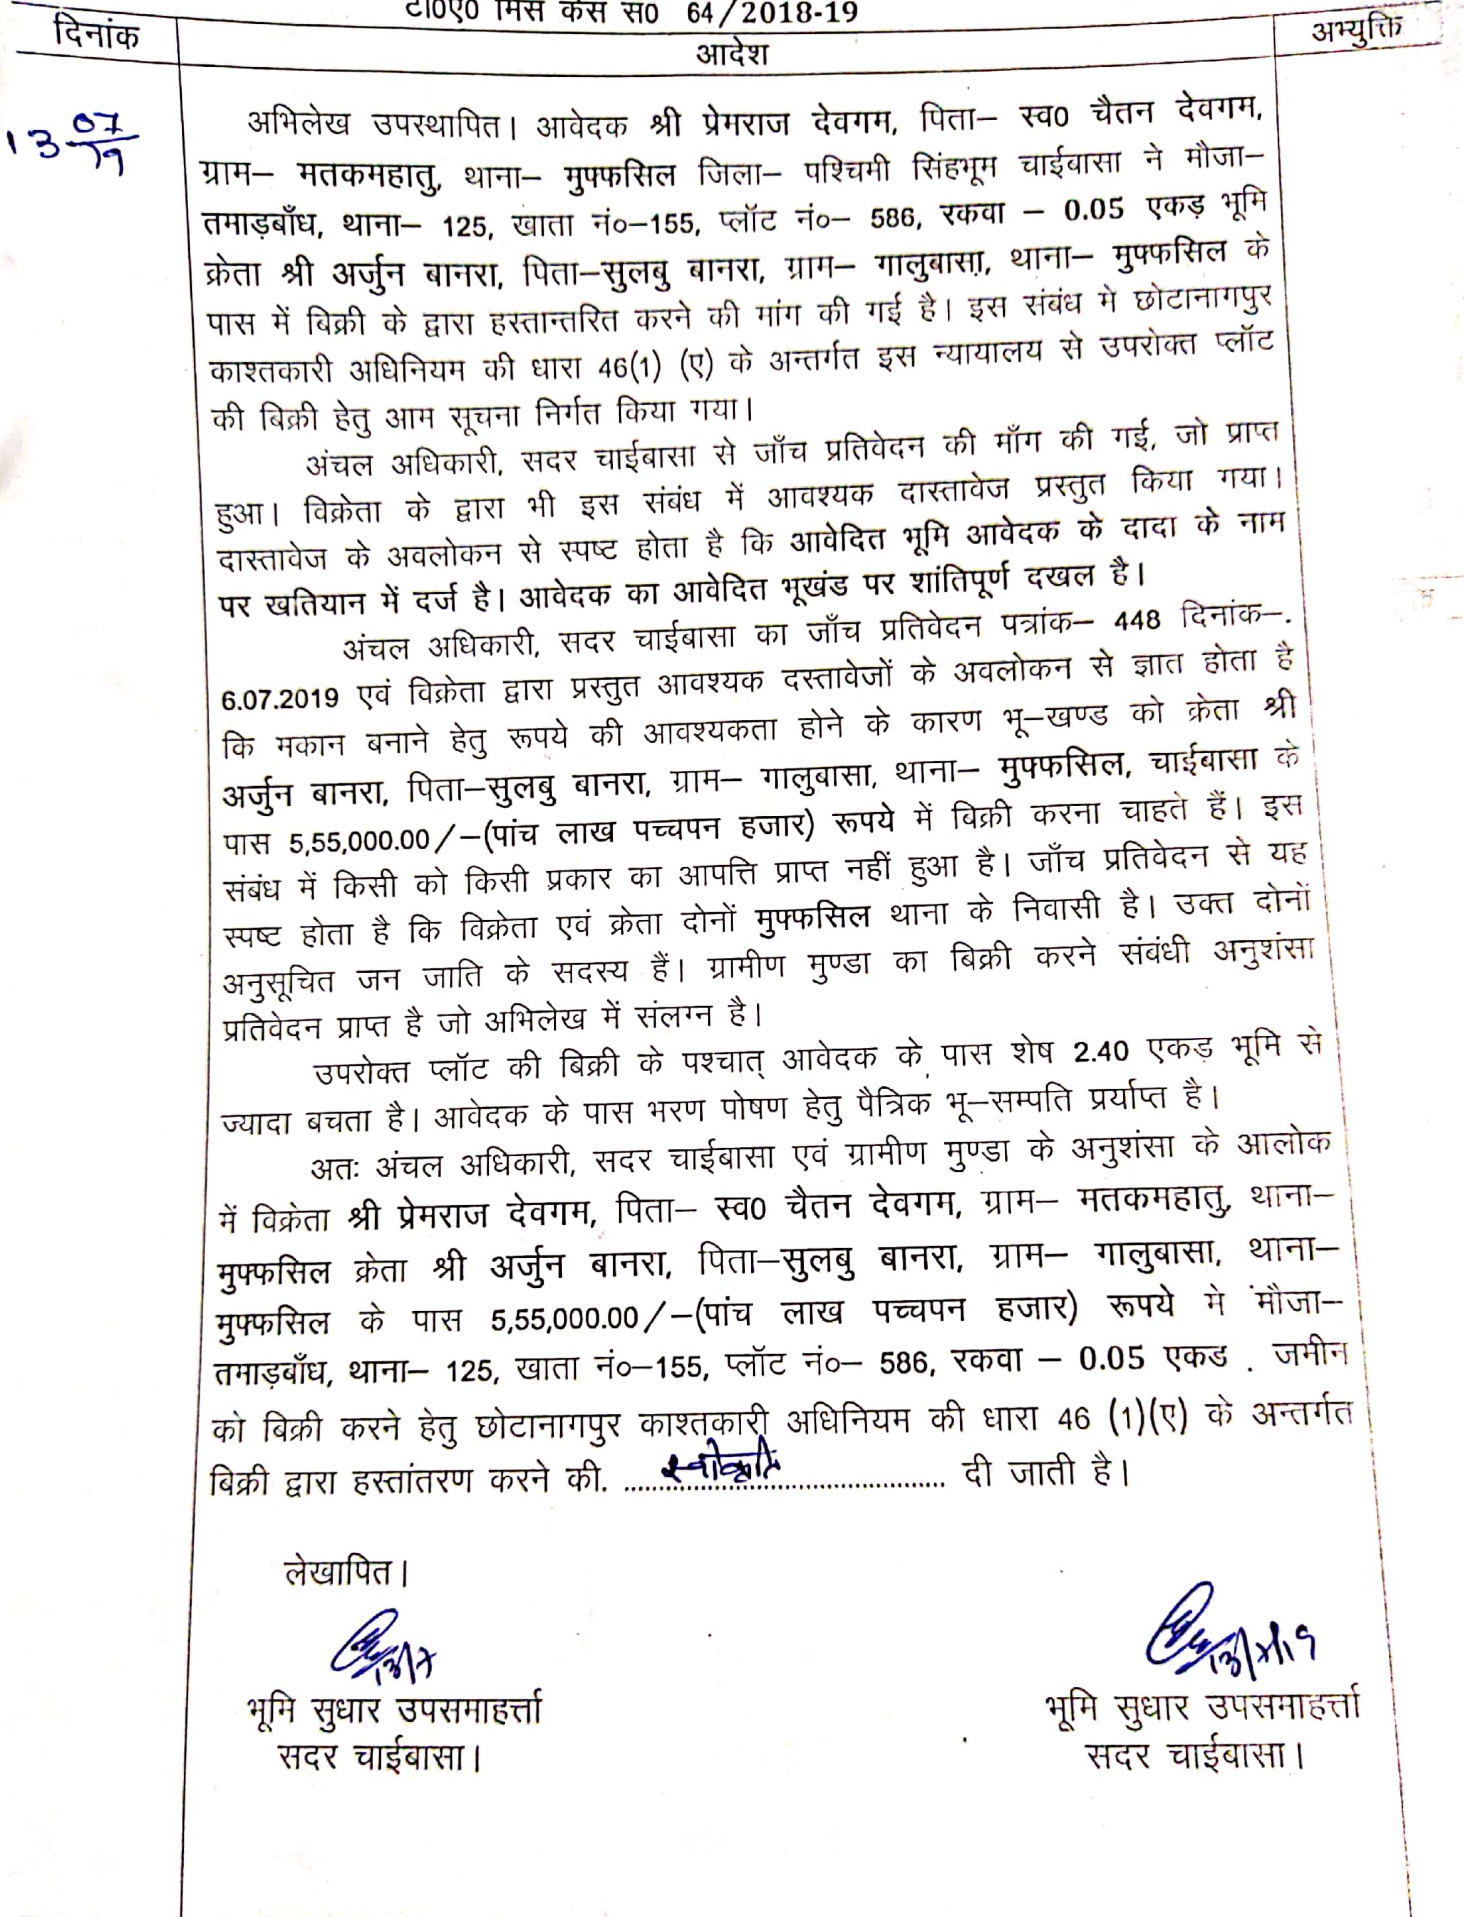 टी०ए० मिस केस सं० 64/2018-19
दिनांक
आदेश
अभ्युक्ति
13 07/19
अभिलेख उपस्थापित। आवेदक श्री प्रेमराज देवगम, पिता– स्व0 चैतन देवगम,
ग्राम– मतकमहातु, थाना– मुफ्फसिल जिला– पश्चिमी सिंहभूम चाईबासा ने मौजा–
तमाड़बाँध, थाना– 125, खाता नं०–155, प्लॉट नं०– 586, रकवा – 0.05 एकड़ भूमि
क्रेता श्री अर्जुन बानरा, पिता–सुलबु बानरा, ग्राम– गालुबासा, थाना– मुफ्फसिल के
पास में बिक्री के द्वारा हस्तान्तरित करने की मांग की गई है। इस संबंध मे छोटानागपुर
काश्तकारी अधिनियम की धारा 46(1) (ए) के अन्तर्गत इस न्यायालय से उपरोक्त प्लॉट
की बिक्री हेतु आम सूचना निर्गत किया गया।
अंचल अधिकारी, सदर चाईबासा से जाँच प्रतिवेदन की माँग की गई, जो प्राप्त
हुआ। विक्रेता के द्वारा भी इस संबंध में आवश्यक दास्तावेज प्रस्तुत किया गया।
दास्तावेज के अवलोकन से स्पष्ट होता है कि आवेदित भूमि आवेदक के दादा के नाम
पर खतियान में दर्ज है। आवेदक का आवेदित भूखंड पर शांतिपूर्ण दखल है।
अंचल अधिकारी, सदर चाईबासा का जाँच प्रतिवेदन पत्रांक– 448 दिनांक–.
6.07.2019 एवं विक्रेता द्वारा प्रस्तुत आवश्यक दस्तावेजों के अवलोकन से ज्ञात होता है
कि मकान बनाने हेतु रूपये की आवश्यकता होने के कारण भू–खण्ड को क्रेता श्री
अर्जुन बानरा, पिता–सुलबु बानरा, ग्राम– गालुबासा, थाना– मुफ्फसिल, चाईबासा के
पास 5,55,000.00/–(पांच लाख पच्चपन हजार) रूपये में बिक्री करना चाहते हैं। इस
संबंध में किसी को किसी प्रकार का आपत्ति प्राप्त नहीं हुआ है। जाँच प्रतिवेदन से यह
स्पष्ट होता है कि विक्रेता एवं क्रेता दोनों मुफ्फसिल थाना के निवासी है। उक्त दोनों
अनुसूचित जन जाति के सदस्य हैं। ग्रामीण मुण्डा का बिक्री करने संबंधी अनुशंसा
प्रतिवेदन प्राप्त है जो अभिलेख में संलग्न है।
उपरोक्त प्लॉट की बिक्री के पश्चात् आवेदक के पास शेष 2.40 एकड़ भूमि से
ज्यादा बचता है। आवेदक के पास भरण पोषण हेतु पैत्रिक भू–सम्पति प्रर्याप्त है।
अतः अंचल अधिकारी, सदर चाईबासा एवं ग्रामीण मुण्डा के अनुशंसा के आलोक
में विक्रेता श्री प्रेमराज देवगम, पिता– स्व0 चैतन देवगम, ग्राम– मतकमहातु, थाना–
मुफ्फसिल क्रेता श्री अर्जुन बानरा, पिता–सुलबु बानरा, ग्राम– गालुबासा, थाना–
मुफ्फसिल के पास 5,55,000.00/–(पांच लाख पच्चपन हजार) रूपये मे मौजा–
तमाड़बाँध, थाना– 125, खाता नं०–155, प्लॉट नं०– 586, रकवा – 0.05 एकड . जमीन
को बिक्री करने हेतु छोटानागपुर काश्तकारी अधिनियम की धारा 46 (1)(ए) के अन्तर्गत
बिक्री द्वारा हस्तांतरण करने की. ....स्वीकृति.... दी जाती है।
लेखापित।
13/7
13/7/19
भूमि सुधार उपसमाहर्त्ता
भूमि सुधार उपसमाहर्त्ता
सदर चाईबासा।
सदर चाईबासा।